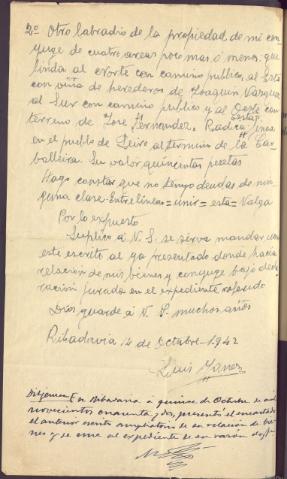 2º Otro labradio de la propiedad de mi con
yuge de cuatro areas poco mas o menos que
linda al Norte con camino publico, al Este
con viña de herederos de Joaquin Vazquez
al Sur con camino publico y al Oeste con
terreno de Jose Fernandez. Radica esta finca
en el pueblo de Leiro al termino de la Car
balleira. Su valor quinientas pesetas
Hago constar que no tengo deudas de nin
guna clase. Entre lineas = unir = esta = Valga
Por lo expuesto
Suplico á V. S. se sirva mandar unir
este escrito al ya presentado donde hacia
relacion de mis bienes y conyuge bajo decla
racion jurada en el expediente referido
Dios guarde á V. S. muchos años
Ribadavia 14 de Octubre 1942
Luis
Diligencia En Ribadavia a quince de Octubre de mil
novecientos cuarenta y dos, presentó el encartado
el anterior escrito ampliatorio de su relación de bie
nes y se une al expediente de su razón doy fe